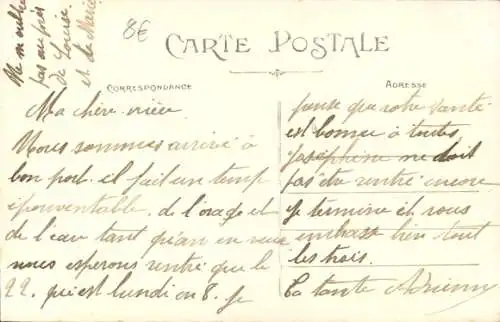 Ne m'oublie
pas auprès
de Louise
et de Marie
8€
CARTE POSTALE
CORRESPONDANCE
ADRESSE
Ma chère nièce
Nous sommes arrivé à
bon port. il fait un temp
épouventable. de l'orage et
de l'eau tant qu'an en veux
nous esperons rentré que le
22. qui est lundi en 8. Je
pense que votre santé
est bonne à toutes,
Joséphine ne doit
pas être rentré encore
Je termine et vous
embrasse bien tout
les trois.
Ta tante Adrienne